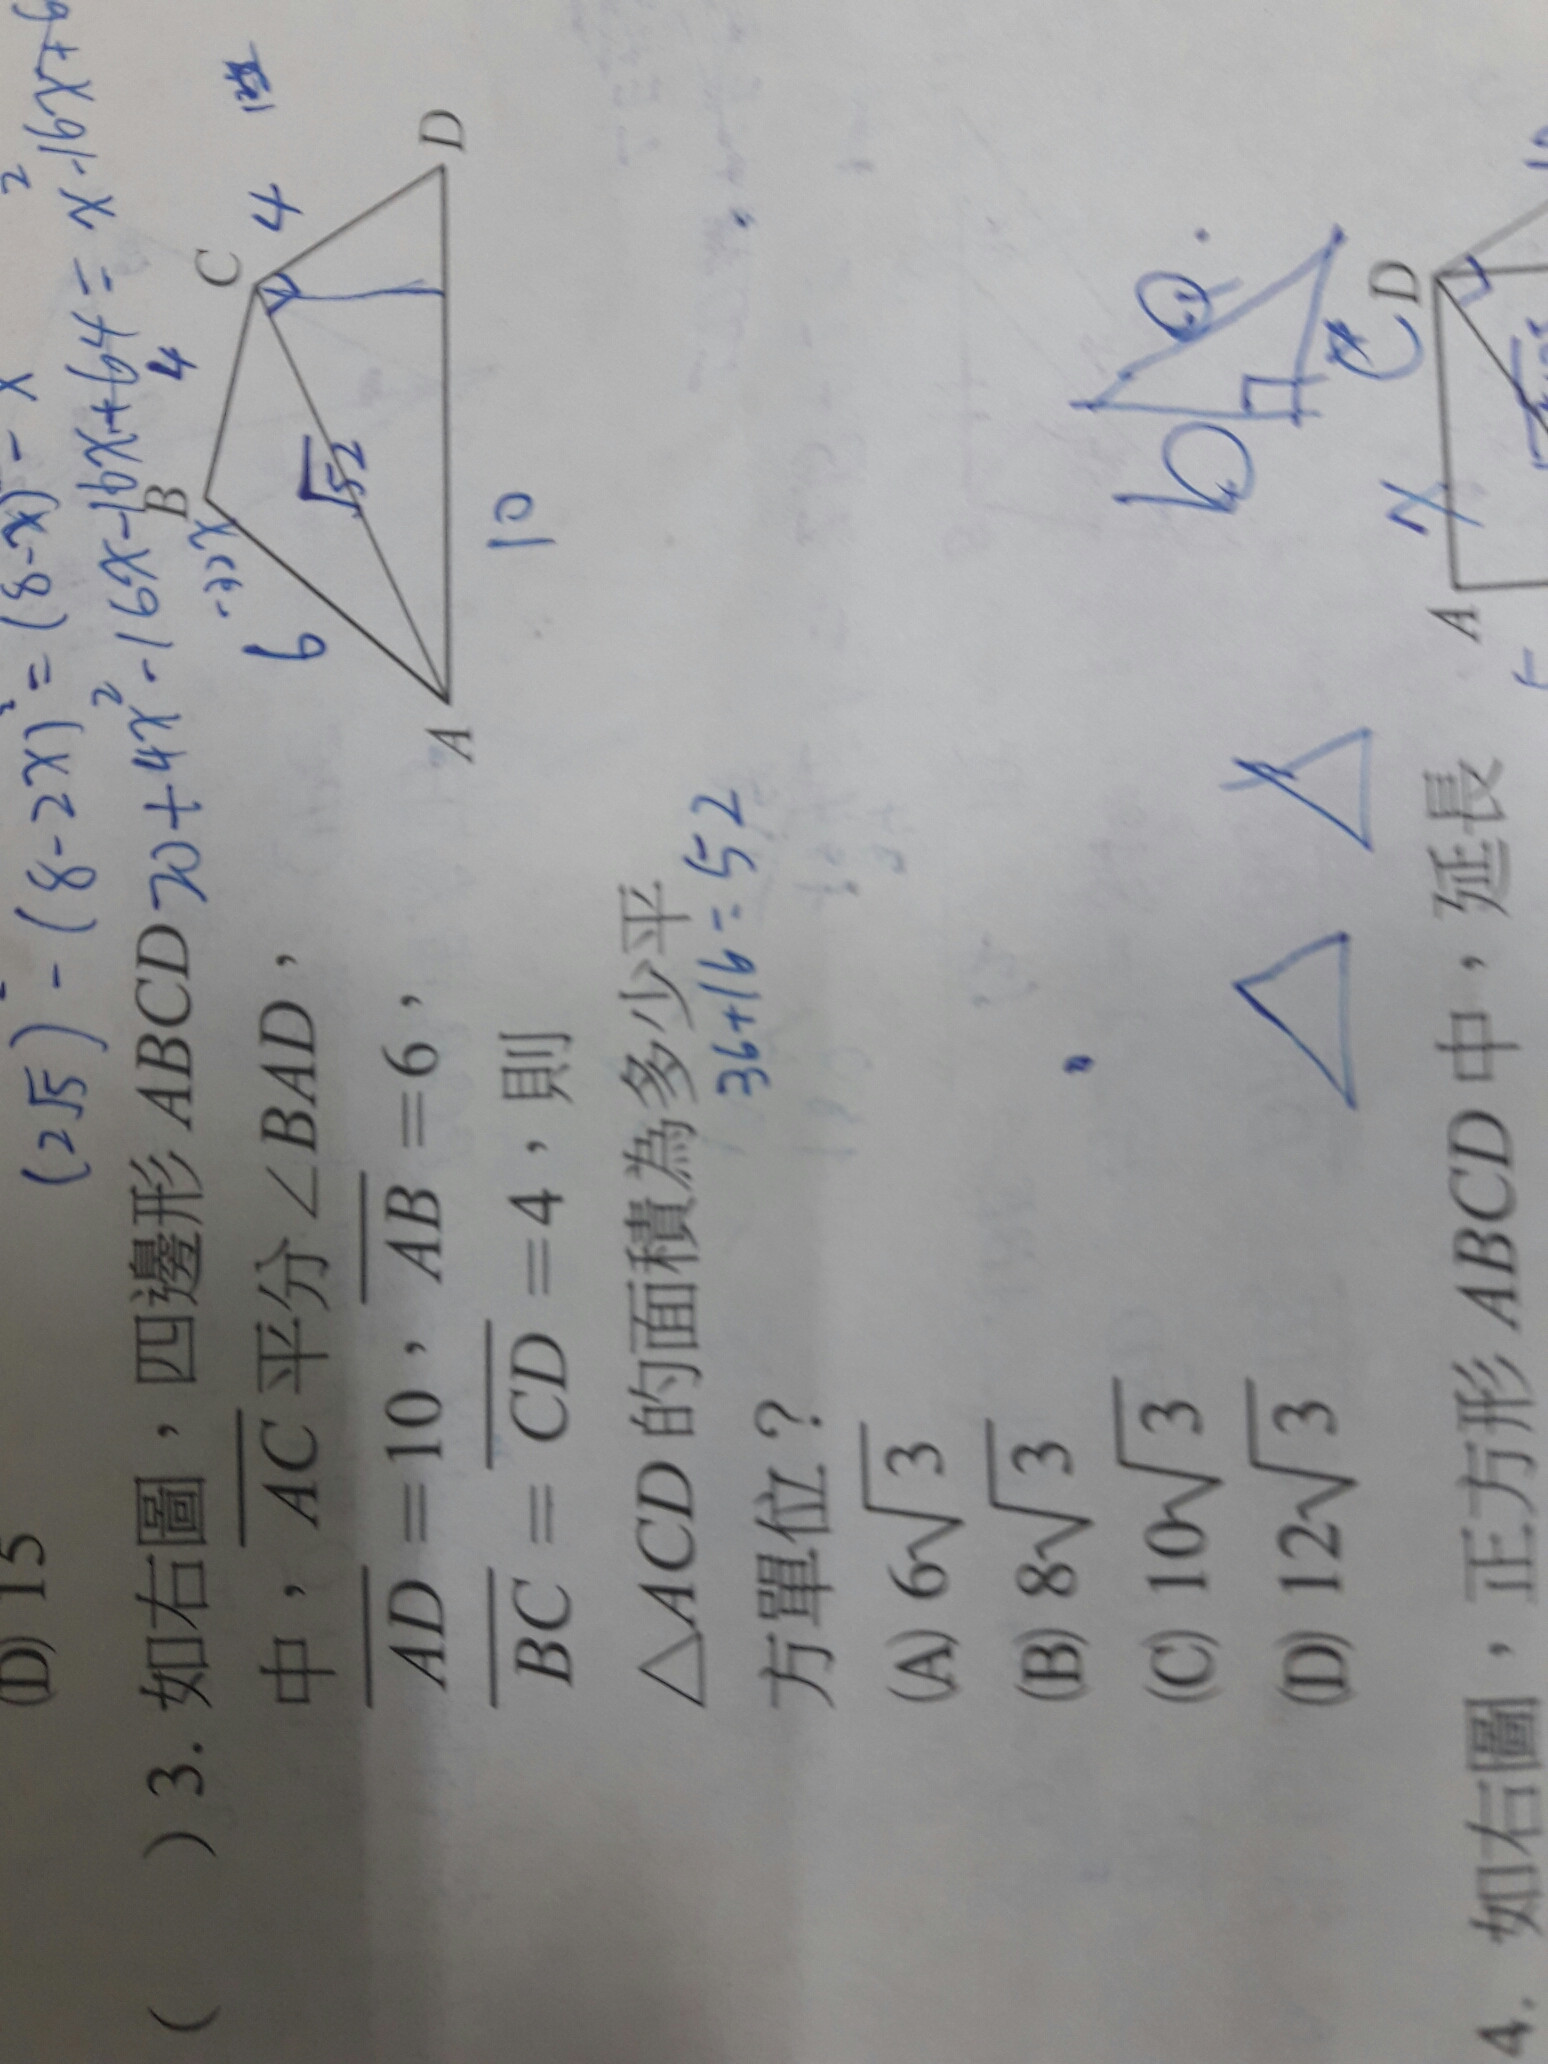 (D) 15
(2√5)² - (8-2x)² = (8-x)² - x²
20+4x²-16x-16x+64=x²-16x+6
( ) 3. 如右圖，四邊形 ABCD
中，AC 平分∠BAD，
AD=10，AB=6，
BC = CD =4，則
△ACD 的面積為多少平
36+16=52
方單位？
(A) 6√3
(B) 8√3
(C) 10√3
(D) 12√3
B
C
A
D
6
4
4
√52
10
b
c
4. 如右圖，正方形 ABCD 中，延長
A
D
x